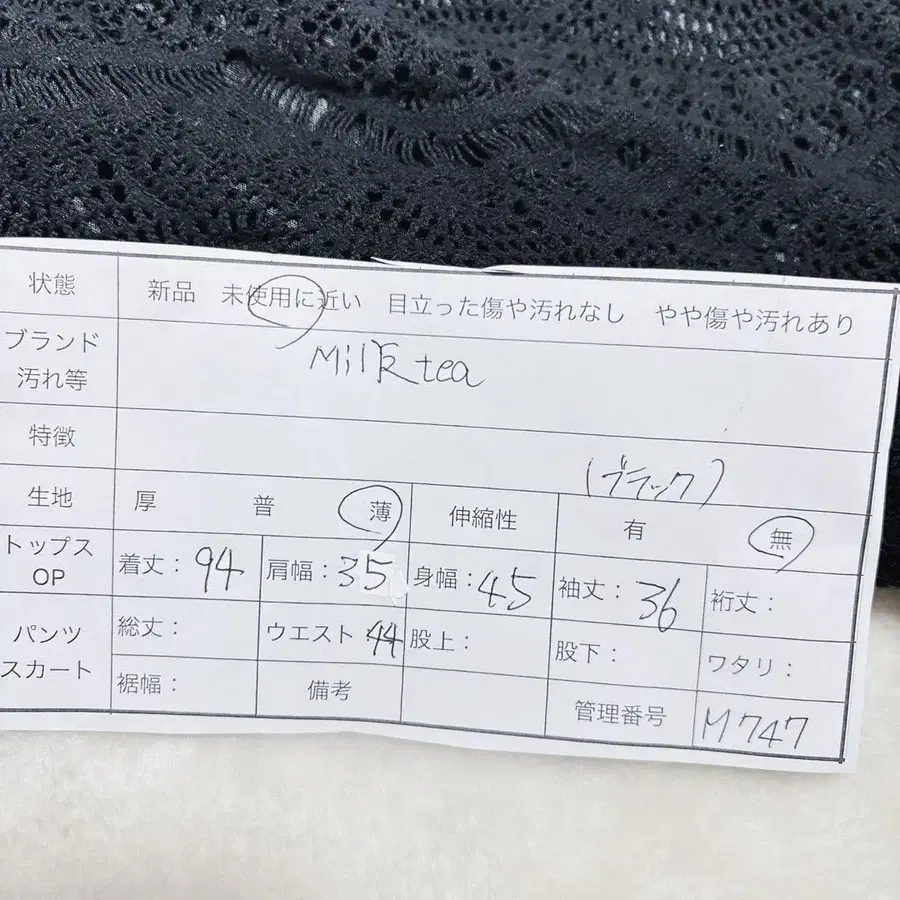 状態 新品 未使用に近い 目立った傷や汚れなし やや傷や汚れあり
ブランド
汚れ等
Milk tea
特徴
(ブラック)
生地 厚 普 薄 伸縮性 有 無
トップス
OP
着丈：94 肩幅：35 身幅：45 袖丈：36 裄丈：
パンツ
スカート
総丈： ウエスト 44 股上： 股下： ワタリ：
裾幅： 備考 管理番号 M747